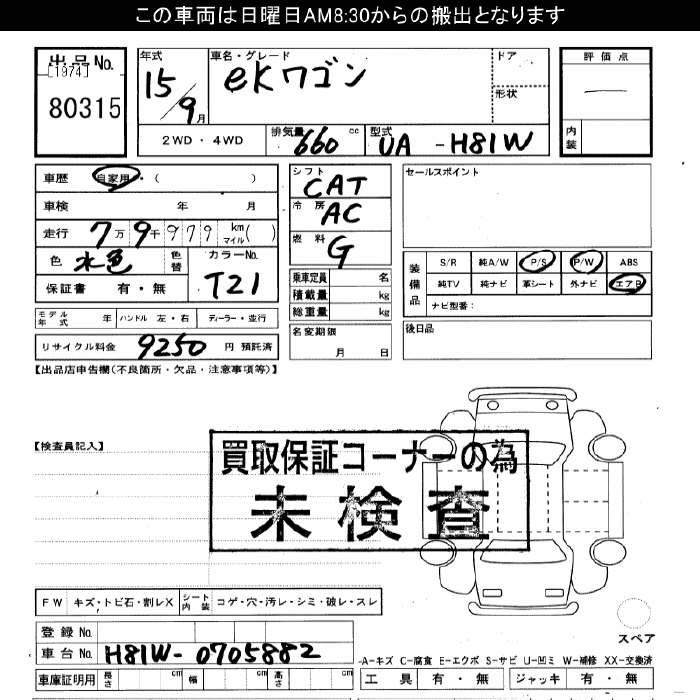 この車両は日曜日AM8:30からの搬出となります
出品No.
[1974]
80315
年式
15/9月
車名・グレード
eKワゴン
ドア
形状
評価点
内装
2WD・4WD
排気量
660 cc
型式
UA -H81W
車歴 自家用・( )
車検 年 月
走行 7万9千979 km マイル( )
色 水色 色替 カラーNo. T21
保証書 有・無
モデル年式 年 ハンドル 左・右 ディーラー・並行
リサイクル料金 9250 円 預託済
シフト CAT
冷房 AC
燃料 G
乗車定員 名
積載量 kg
総重量 kg
名変期限
月 日
セールスポイント
装備品
S/R 純A/W P/S P/W ABS
純TV 純ナビ 革シート 外ナビ エアB
ナビ型番:
後日品
【出品店申告欄(不良箇所・欠品・注意事項等)】
【検査員記入】
買取保証コーナーの為
未検査
FW キズ・トビ石・割レX シート内装 コゲ・穴・汚レ・シミ・破レ・スレ
登録No.
車台No. H81W-0705882
車庫証明用 長さ cm 幅 cm 高さ cm
スペア
-A-キズ C-腐食 E-エクボ S-サビ U-凹ミ W-補修 XX-交換済
工具 有・無 ジャッキ 有・無